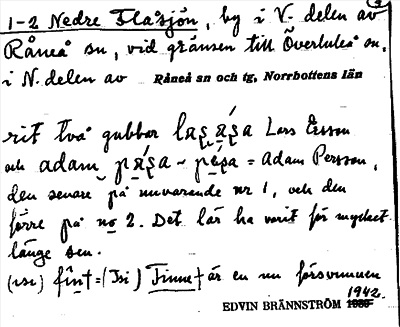 1-2 Nedre Flåsjön, by i V. delen av
Råneå sn, vid gränsen till Överluleå sn,
i N. delen av Råneå sn och tg, Norrbottens län
rit två gubbar Lars Ersson
och adam = Adam Persson,
den senare på nuvarande nr 1, och den
förre på no 2. Det lär ha varit för mycket
länge sen.
finnt = (Isi) Finne är en nu försvunnen
EDVIN BRÄNNSTRÖM 1942.